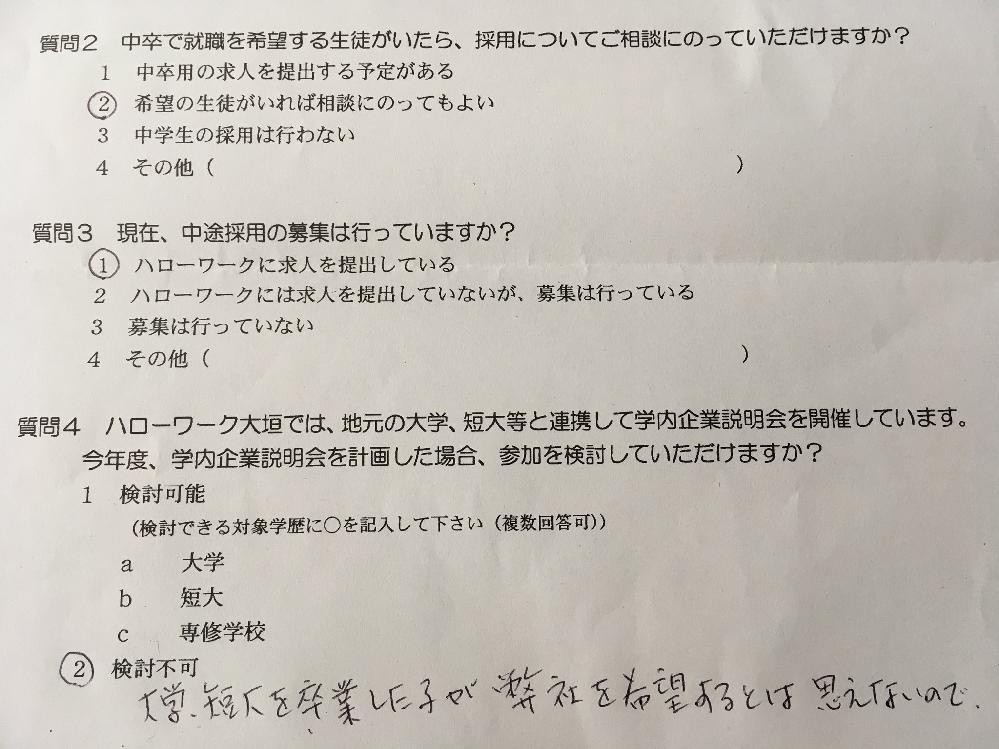 質問2 中卒で就職を希望する生徒がいたら、採用についてご相談にのっていただけますか?
1 中卒用の求人を提出する予定がある
② 希望の生徒がいれば相談にのってもよい
3 中学生の採用は行わない
4 その他( )
質問3 現在、中途採用の募集は行っていますか?
① ハローワークに求人を提出している
2 ハローワークには求人を提出していないが、募集は行っている
3 募集は行っていない
4 その他( )
質問4 ハローワーク大垣では、地元の大学、短大等と連携して学内企業説明会を開催しています。
今年度、学内企業説明会を計画した場合、参加を検討していただけますか?
1 検討可能
(検討できる対象学歴に○を記入して下さい(複数回答可))
a 大学
b 短大
c 専修学校
② 検討不可
大学、短大を卒業した子が弊社を希望するとは思えないので、